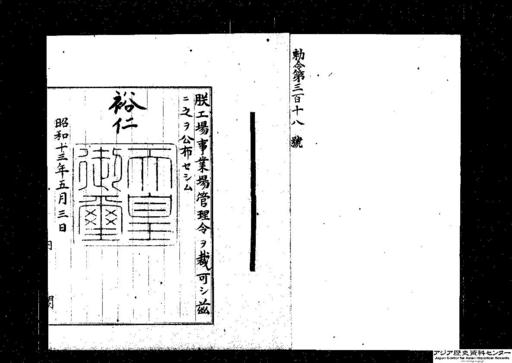 勅令第三百十八號
朕工場事業場管理令ヲ裁可シ茲
ニ之ヲ公布セシム
裕仁
天皇御璽
昭和十三年五月三日
内
閣
アジア歴史資料センター
Japan Center for Asian Historical Records